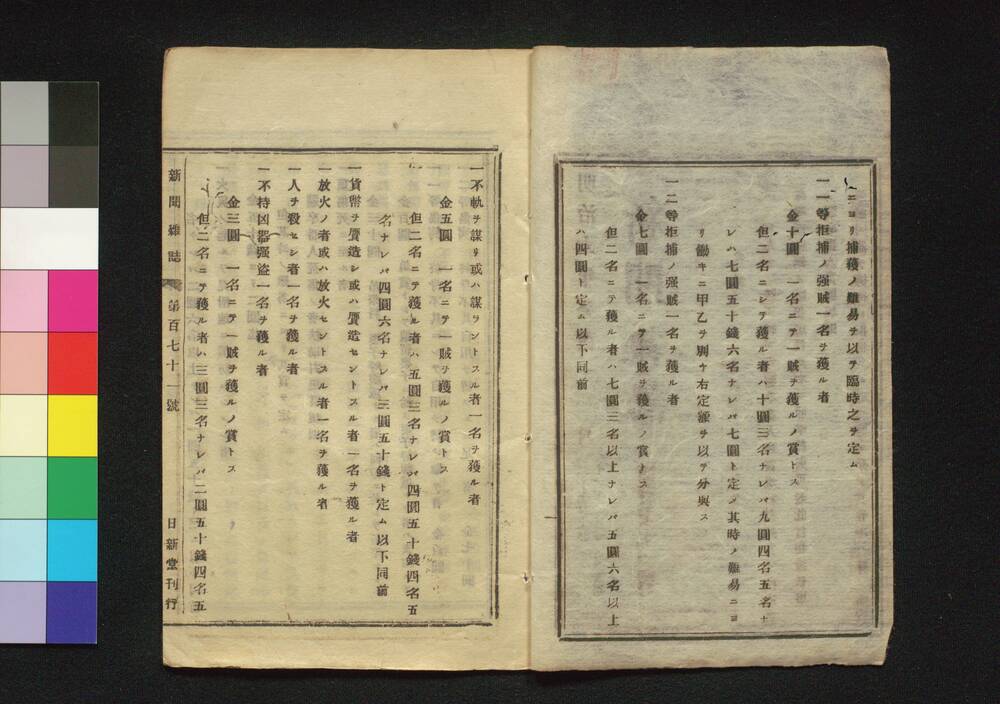 ニヨリ捕獲ノ難易ヲ以テ臨時之ヲ定ム
一一等拒捕ノ强賊一名ヲ獲ル者
金十圓 一名ニテ一賊ヲ獲ルノ賞トス
但二名ニシテ獲ル者ハ十圓三名ナレバ九圓四名五名ナ
レハ七圓五十錢六名ナレバ七圓ト定メ其時ノ難易ニヨ
リ働キニ甲乙ヲ別ケ右定額ヲ以テ分與ス
一二等拒捕ノ强賊一名ヲ獲ル者
金七圓 一名ニテ一賊ヲ獲ルノ賞トス
但二名ニテ獲ル者ハ七圓三名以上ナレバ五圓六名以上
ハ四圓ト定ム以下同前
一不軌ヲ謀リ或ハ謀ラントスル者一名ヲ獲ル者
金五圓 一名ニテ一賊ヲ獲ルノ賞トス
但二名ニテ獲ル者ハ五圓三名ナレバ四圓五十錢四名五
名ナレバ四圓六名ナレバ三圓五十錢ト定ム以下同前
一貨幣ヲ贋造シ或ハ贋造セントスル者一名ヲ獲ル者
一放火ノ者或ハ放火セントスル者一名ヲ獲ル者
一人ヲ殺セシ者一名ヲ獲ル者
一不持凶器强盜一名ヲ獲ル者
金三圓 一名ニテ一賊ヲ獲ルノ賞トス
但二名ニテ獲ル者ハ三圓三名ナレバ二圓五十錢四名五
新聞雜誌 第百七十一號 日新堂刊行